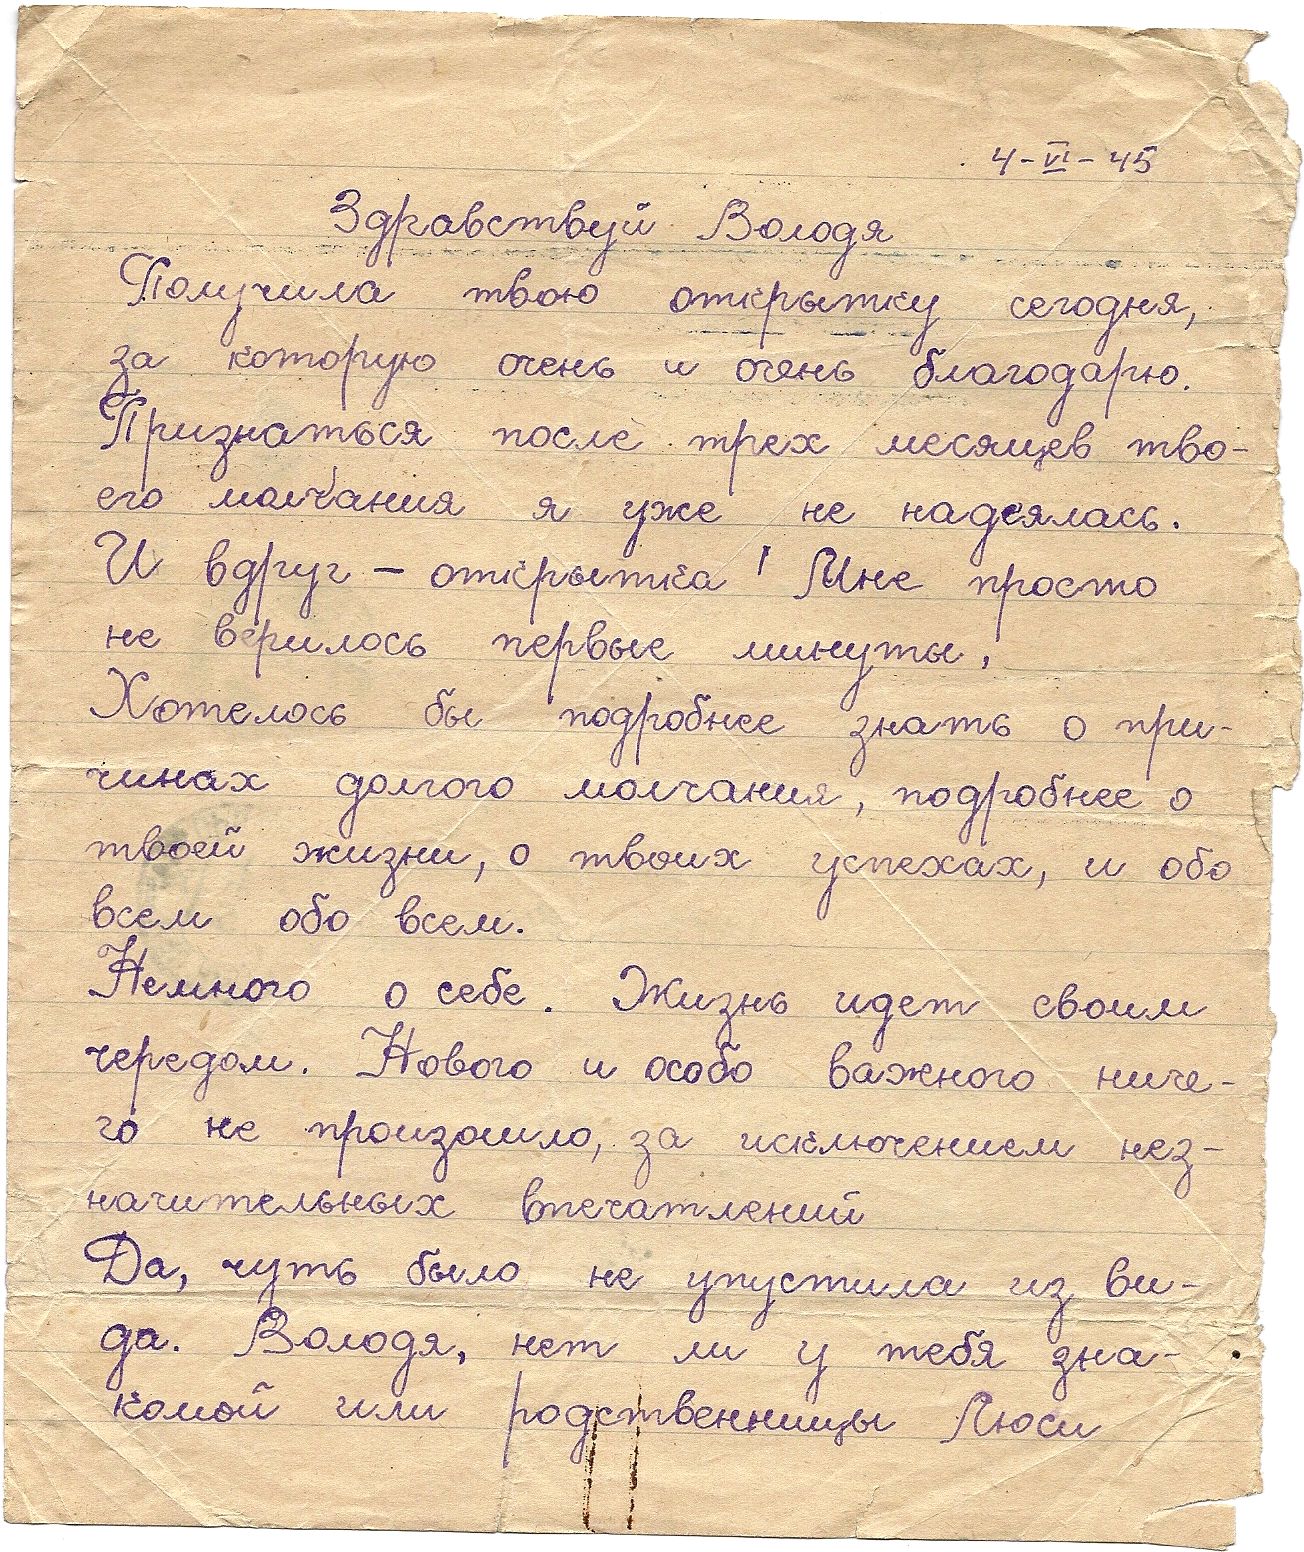 4-VI-45
Здравствуй Володя
Получила твою открытку сегодня,
за которую очень и очень благодарю.
Признаться после трех месяцев тво-
его молчания я уже не надеялась.
И вдруг – открытка! Мне просто
не верилось первые минуты.
Хотелось бы подробнее знать о при-
чинах долгого молчания, подробнее о
твоей жизни, о твоих успехах, и обо
всем обо всем.
Немного о себе. Жизнь идет своим
чередом. Нового и особо важного ниче-
го не произошло, за исключением нез-
начительных впечатлений
Да, чуть было не упустила из ви-
да. Володя, нет ли у тебя зна-
комой или родственницы Люси